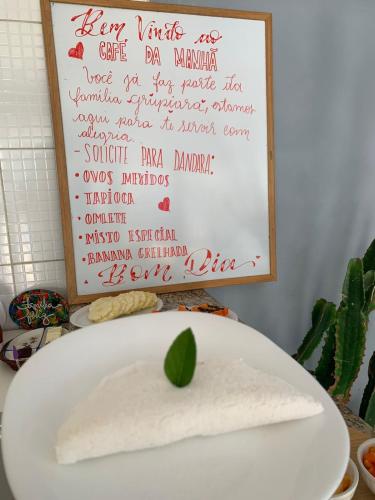 Bem Vindo ao
CAFÉ DA MANHÃ
Você já faz parte da
família Grupiara, estamos
aqui para te servir com
alegria.
- SOLICITE PARA DANDARA:
• OVOS MEXIDOS
• TAPIOCA
• OMLETE
• MISTO ESPECIAL
• BANANA GRELHADA
Bom Dia
família
feliz